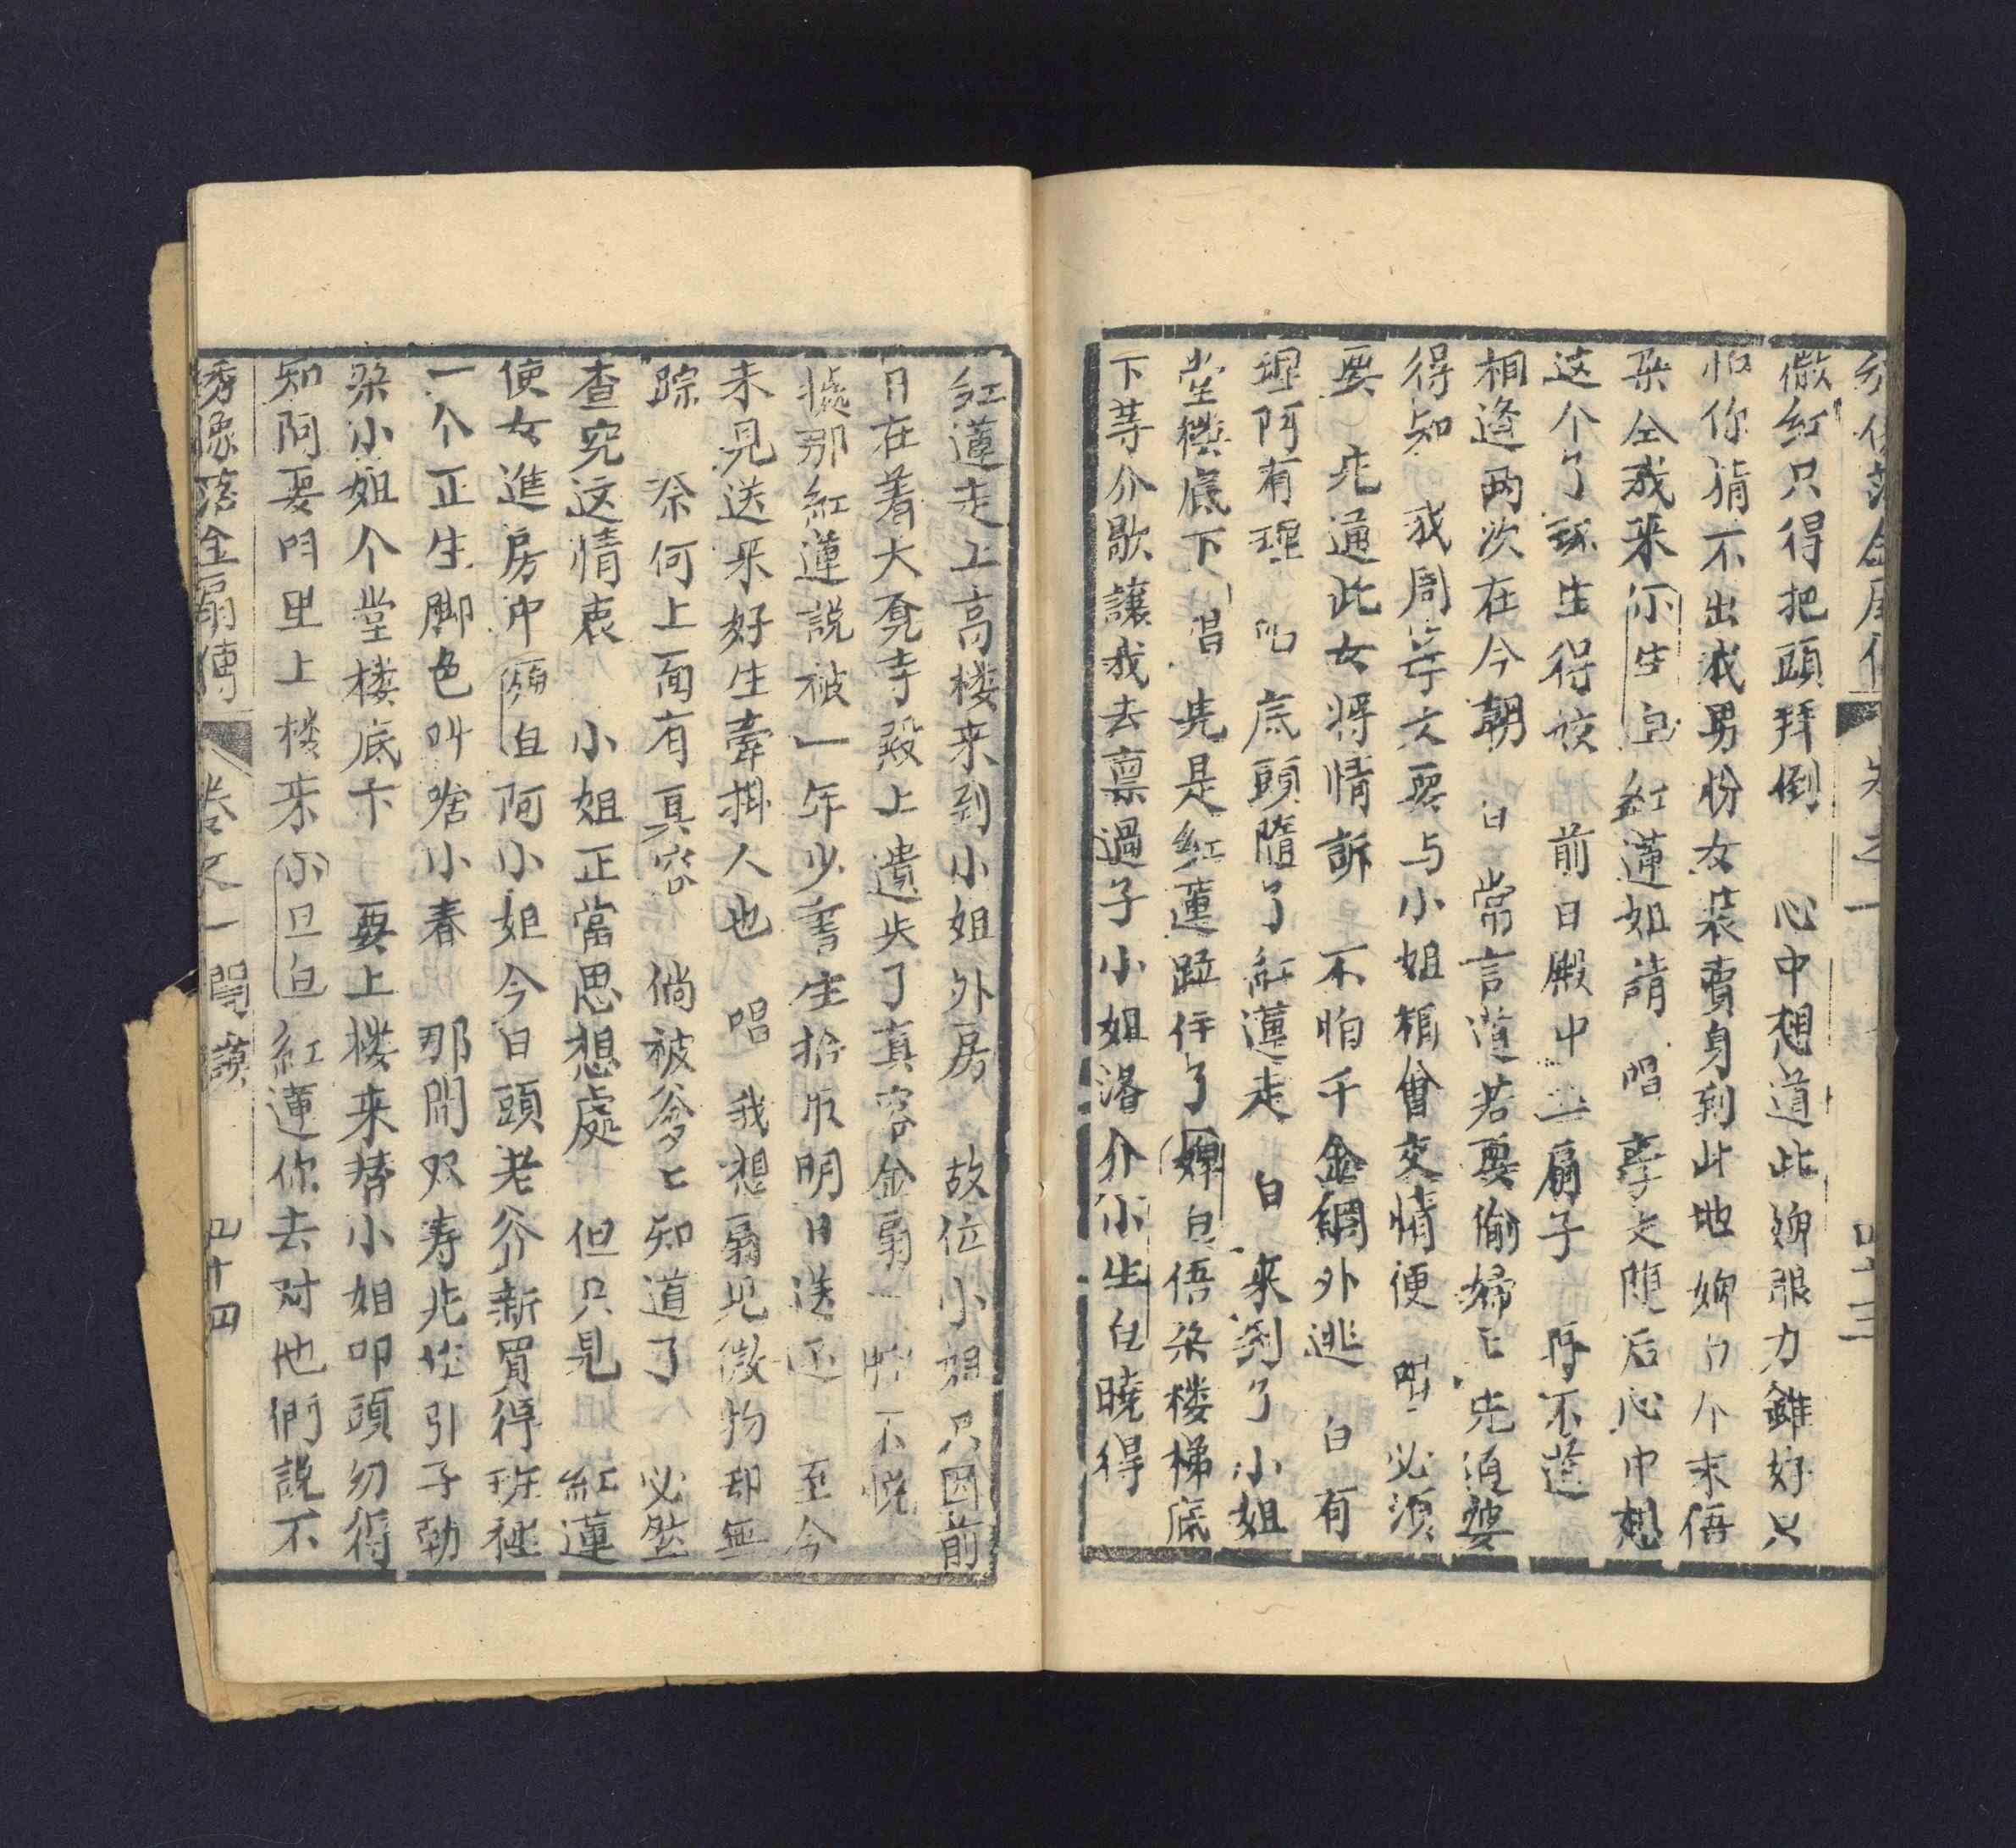 微紅只得把頭拜倒　心中想道此婢眼力雖好只
怕你猜不出我男扮女裝賣身到此地婢白个末俉
朶仝我来小生白紅蓮姐請　唱　孝文随后心中想
这个了环生得佼　前日殿中　扇子　再不道
相逢两次在今朝　白　常言道若要偷婦匕先通婆
得知　我周孝文要与小姐相會交情便　唱　必須
要　先通此女將情訴　不怕千金綢外逃　白　有
理阿有理　唱　底頭隨了紅蓮走　白　来到了小姐
堂楼底下　唱　先是紅蓮跕住了婢白俉朶楼梯底
下等介歇讓我去禀過子小姐洛介小生白曉得
紅蓮走上高楼来到小姐外房　故位小姐只因前
日在着大覚寺殿上遺失了真容金扇一　不悅
處那紅蓮説被一年少書生拾取明日送还　至今
未見送釆好生牽掛人也　唱　我想扇児微物却無
踪　奈何上面有真容　倘被爹匕知道了　必然
查究这情衷　小姐正當思想處　但只見　紅蓮
使女進房中　白阿小姐今日頭老爷新買得班裡
一个正生脚色叫啥小春　那間双寿北　引子勒
朶小姐个堂楼底下　要上楼来替小姐叩頭勿得
知阿要叫里上楼来小旦白紅蓮你去对他們説不
綉像落金扇傳　卷之一　閙　四十四